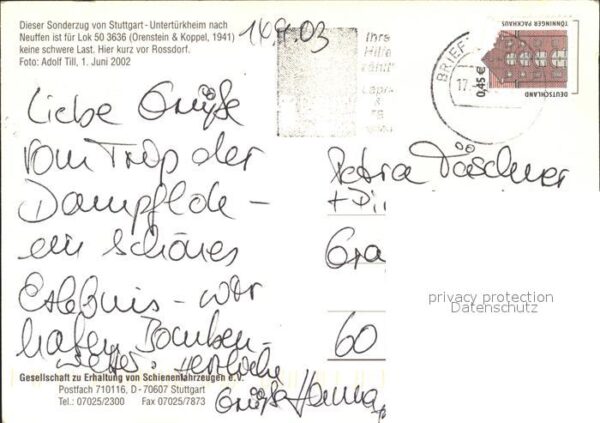 Dieser Sonderzug von Stuttgart - Untertürkheim nach
Neuffen ist für Lok 50 3636 (Orenstein & Koppel, 1941)
keine schwere Last. Hier kurz vor Rossdorf.
Foto: Adolf Till, 1. Juni 2002
14.9.03
Liebe Grüße
vom Trip der
Dampflok -
ein schönes
Erlebnis - wir
hatten Bomben-
wetter. Herzliche
Grüße Hanna
Gesellschaft zu Erhaltung von Schienenfahrzeugen e.V.
Postfach 710116, D - 70607 Stuttgart
Tel.: 07025/2300 Fax 07025/7873
Ihre
Hilfe
zählt
BRIEF
17.
TÖNNINGER PACKHAUS
0,45 €
DEUTSCHLAND
Petra Täschner
+
Gra
60
privacy protection
Datenschutz